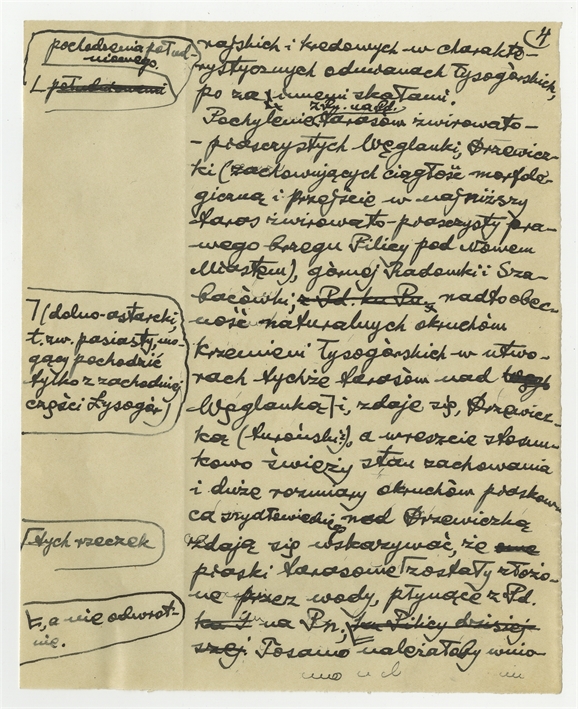 4
pochodzenia połud-
niowego.
południowemi
rajskich i kredowych w charakte-
rystycznych odmianach łysogórskich,
po za innemi skałami.
z Pn. na Pd.
Pochylenie tarasów żwirowato-
-piaszczystych Węglanki, Drzewicz-
ki (zachowujących ciągłość morfolo-
giczną i przejście w najniższy
taras żwirowato-piaszczysty pra-
wego brzegu Pilicy pod Nowem
Miastem), górnej Radomki i Sza-
bacówki, z Pd. ku Pn., nadto obec-
ność naturalnych okruchów
krzemieni łysogórskich w utwo-
rach tychże tarasów nad
Węglanką] i, zdaje się, Drzewicz-
ką (turoński?), a wreszcie stosun-
kowo świeży stan zachowania
i duże rozmiary okruchów piaskow-
ca szydłowieckiego nad Drzewiczką
zdają się wskazywać, że one
piaski tarasowe zostały złożo-
ne przez wody, płynące z Pd.
na Pn, ku Pilicy dzisiej-
szej. To samo należałoby wnio-
7 (dolno-astarcki,
t.zw. pasiasty, mo-
gący pochodzić
tylko z zachodniej
części Łysogór)
tych rzeczek
, a nie odwrot-
nie.